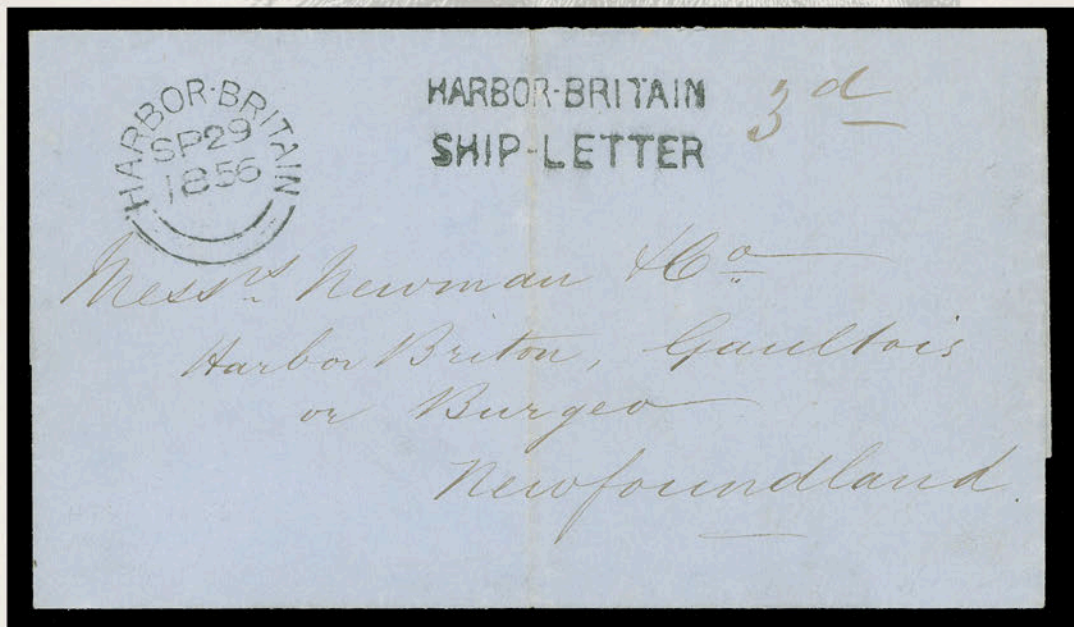 HARBOR-BRITAIN
SP29
1856
HARBOR-BRITAIN
SHIP-LETTER
3d
Messrs Newman & Co
Harbor Briton, Gaultois
or Burgeo
Newfoundland.